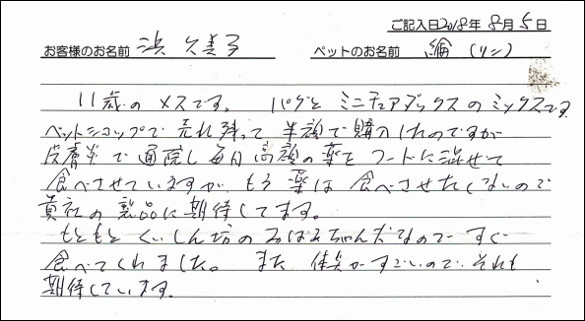 ご記入日2018年 8月 5日
お客様のお名前 浜 久美子 ペットのお名前 綸 (リン)
11歳のメスです。 パグと ミニチュアダックスのミックスです
ペットショップで売れ残って 半額で購入したのですが
皮膚炎で通院し毎日高額の薬をフードに混ぜて
食べさせていますが もう薬は食べさせたくないので
貴社の製品に期待してます。
もともと くいしん坊の おばあちゃん犬なので すぐ
食べてくれました。 また 体臭がすごいので それも
期待しています。